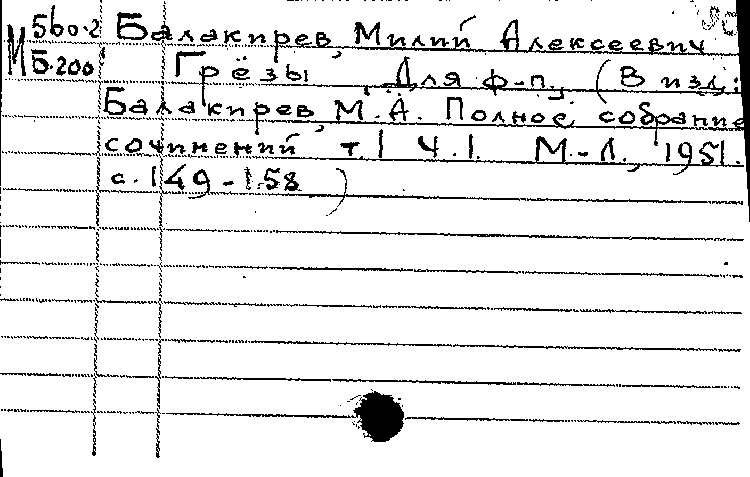 560.2 Балакирев, Милий Алексеевич
М Б.200 Грёзы Для ф-п. (В изд.:
Балакирев, М.А. Полное собрание
сочинений т.1 ч.1. М.-Л., 1951.
с.149-158)